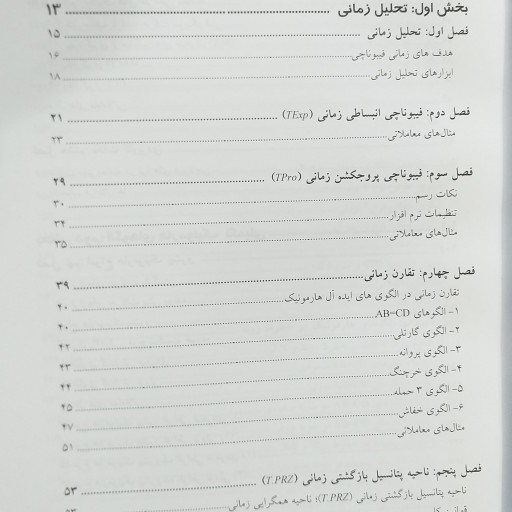 بخش اول: تحلیل زمانی ........ ۱۳
فصل اول: تحلیل زمانی ........ ۱۵
هدف های زمانی فیبوناچی ........ ۱۶
ابزارهای تحلیل زمانی ........ ۱۸
فصل دوم: فیبوناچی انبساطی زمانی (TExp) ........ ۲۱
مثال‌های معاملاتی ........ ۲۳
فصل سوم: فیبوناچی پروجکشن زمانی (TPro) ........ ۲۹
نکات رسم ........ ۳۰
تنظیمات نرم افزار ........ ۳۴
مثال‌های معاملاتی ........ ۳۵
فصل چهارم: تقارن زمانی ........ ۳۹
تقارن زمانی در الگوی های ایده آل هارمونیک ........ ۴۰
۱- الگوهای AB=CD ........ ۴۰
۲- الگوی گارتلی ........ ۴۲
۳- الگوی پروانه ........ ۴۳
۴- الگوی خرچنگ ........ ۴۴
۵- الگوی ۳ حمله ........ ۴۵
۶- الگوی خفاش ........ ۴۷
مثال‌های معاملاتی ........ ۵۱
فصل پنجم: ناحیه پتانسیل بازگشتی زمانی (T.PRZ) ........ ۵۳
ناحیه پتانسیل بازگشتی زمانی (T.PRZ)؛ ناحیه همگرایی زمانی ........ ۵۳